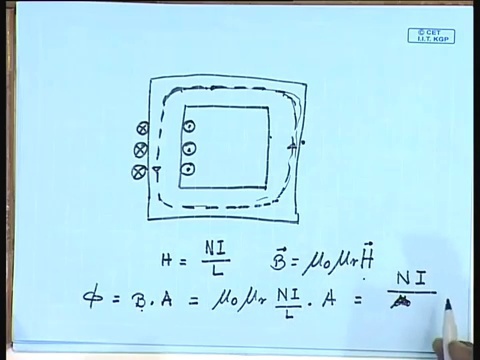 © CET
I.I.T. KGP
H = NI/L    B⃗ = μ₀μr H⃗
ϕ = B . A = μ₀μr NI/L . A = NI/